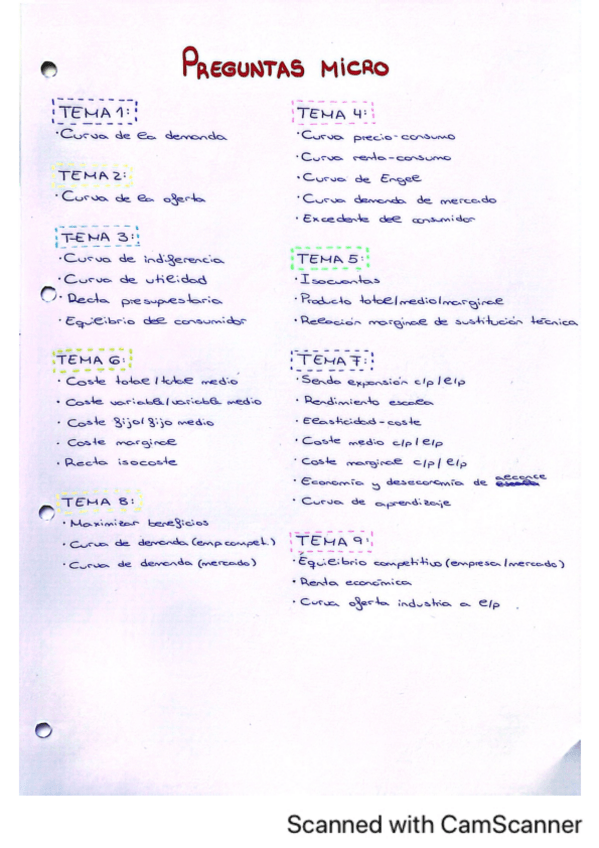 PREGUNTAS MICRO
TEMA 1:
· Curva de la demanda
TEMA 2:
· Curva de la oferta
TEMA 3:
· Curva de indiferencia
· Curva de utilidad
· Recta presupuestaria
· Equilibrio del consumidor
TEMA 4:
· Curva precio-consumo
· Curva renta-consumo
· Curva de Engel
· Curva demanda de mercado
· Excedente del consumidor
TEMA 5:
· Isocuantas
· Producto total/medio/marginal
· Relación marginal de sustitución técnica
TEMA 6:
· Coste total/total medio
· Coste variable/variable medio
· Coste fijo/fijo medio
· Coste marginal
· Recta isocoste
TEMA 7:
· Senda expansión c/p/e/p
· Rendimiento escala
· Elasticidad-coste
· Coste medio c/p/e/p
· Coste marginal c/p/e/p
· Economía y deseconomía de alcance
· Curva de aprendizaje
TEMA 8:
· Maximizar beneficios
· Curva de demanda (emp compet.)
· Curva de demanda (mercado)
TEMA 9:
· Equilibrio competitivo (empresa/mercado)
· Renta económica
· Curva oferta industria a e/p
Scanned with CamScanner